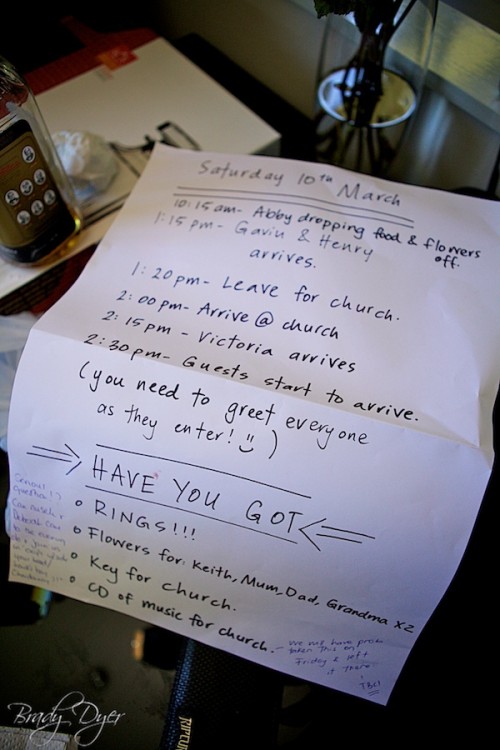 Saturday 10th March
10:15 am- Abby dropping food & flowers
off.
1:15 pm- Gavin & Henry
arrives.
1:20 pm- Leave for church.
2:00 pm- Arrive @ church
2:15 pm- Victoria arrives
2:30 pm- Guests start to arrive.
(you need to greet everyone
as they enter! :))
HAVE YOU GOT
• RINGS!!!
• Flowers for: Keith, Mum, Dad, Grandma x2
• Key for church.
• CD of music for church.-
We may have
taken this on
Friday & left
it there.
TBC!
Brady Dyer